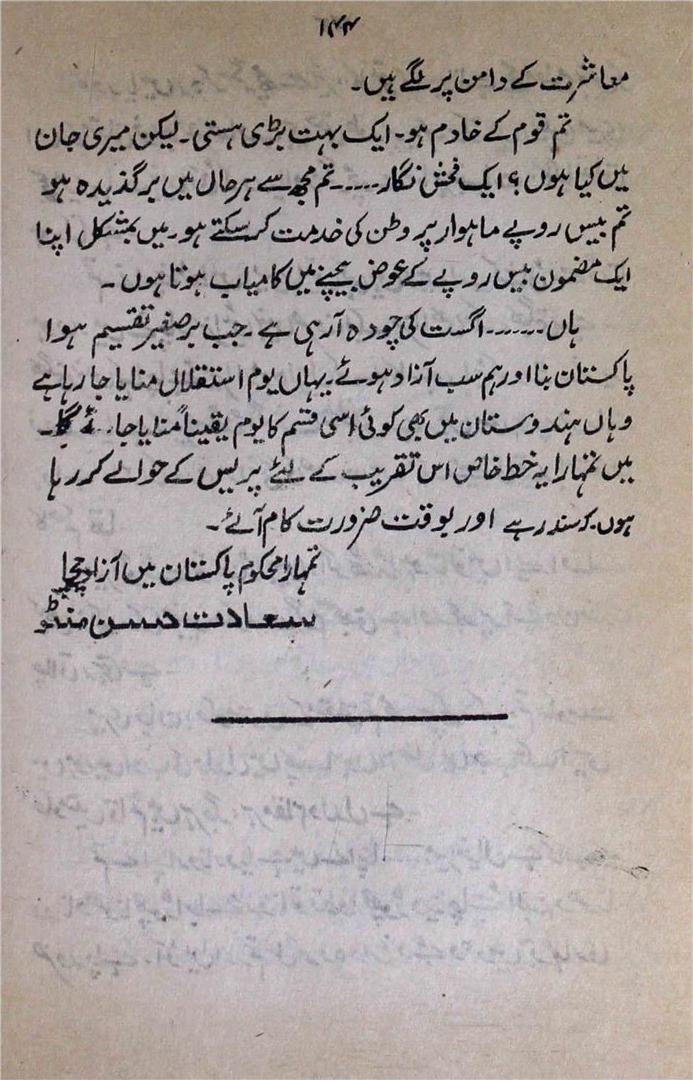 ۱۴۴
معاشرت کے دامن پر لگے ہیں۔
تم قوم کے خادم ہو۔ ایک بہت بڑی ہستی۔ لیکن میری جان
میں کیا ہوں؟ ایک فحش نگار.... تم مجھ سے ہر حال میں برگذیدہ ہو
تم بیس روپے ماہوار پر وطن کی خدمت کر سکتے ہو۔ میں بمشکل اپنا
ایک مضمون بیس روپے کے عوض بیچنے میں کامیاب ہوتا ہوں۔
ہاں...... اگست کی چودہ آ رہی ہے۔ جب برصغیر تقسیم ہوا
پاکستان بنا اور ہم سب آزاد ہوئے۔ یہاں یوم استقلال منایا جا رہا ہے
وہاں ہندوستان میں بھی کوئی اسی قسم کا یوم یقیناً منایا جائے گا۔
میں تمہارا یہ خط خاص اس تقریب کے لیئے پریس کے حوالے کر رہا
ہوں کہ سند رہے اور بوقت ضرورت کام آئے۔
تمہارا محکوم پاکستان میں آزاد چچا
سعادت حسن منٹو